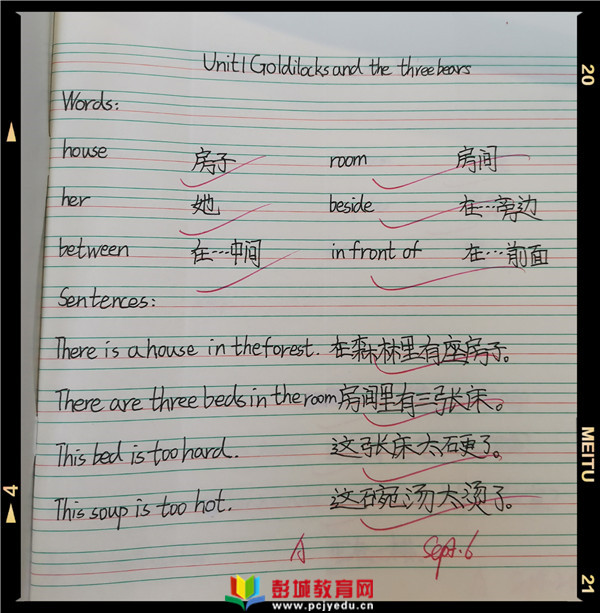 Unit1 Goldilocks and the three bears
Words:
house 房子 room 房间
her 她 beside 在…旁边
between 在…中间 in front of 在…前面
Sentences:
There is a house in the forest. 在森林里有座房子。
There are three beds in the room 房间里有三张床。
This bed is too hard. 这张床太硬了。
This soup is too hot. 这碗汤太烫了。
A Sept. 6
彭城教育网
www.pcjyedu.cn
20
MEITU
21
4